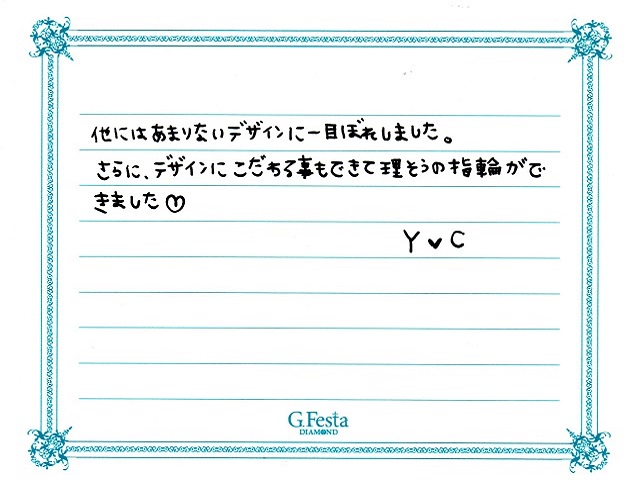 他にはあまりないデザインに一目ぼれしました。
さらに、デザインにこだわる事もできて理そうの指輪がで
きました♡
Y♥C
G.Festa
DIAMOND